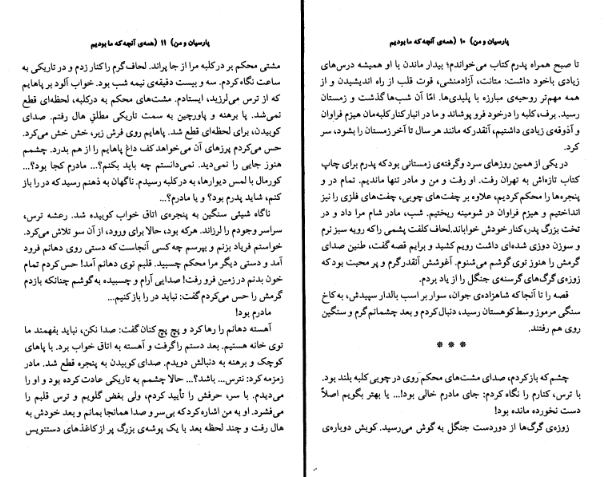 پارسیان و من) ۱۰ (همه‌ی آنچه که ما بودیم
تا صبح همراه پدرم کتاب می‌خواندم؛ بیدار ماندن با او همیشه درس‌های
زیادی باخود داشت: متانت، آزادمنشی، قوت قلب از راه اندیشیدن و از
همه مهم‌تر روحیه‌ی مبارزه با پلیدی‌ها. امّا آن شب‌ها گذشت و زمستان
رسید. برف، کلبه را درخود فرو پوشاند و ما در انبار کنار کلبه‌مان هیزم فراوان
و آذوقه‌ی زیادی داشتیم، آنقدر که مانند هر سال تا آخر زمستان را بشود، سر
کرد.
در یکی از همین روزهای سرد و گرفته‌ی زمستانی بود که پدرم برای چاپ
کتاب تازه‌اش به تهران رفت. او رفت و من و مادر تنها ماندیم. تمام در و
پنجره‌ها را محکم کردیم، علاوه بر چفت‌های چوبی، چفت‌های فلزی را نیز
انداختیم و هیزم فراوان در شومینه ریختیم. شب، مادر شام مرا داد و در
تخت بزرگ پدر، کنار خودش خواباند. لحاف کلفت پشمی را که رویه سبز نرم
و سوزن دوزی شده‌ای داشت رویم کشید و برایم قصه گفت، طنین صدای
گرمش را هنوز توی گوشم می‌شنوم. آغوشش آنقدر گرم و پر محبت بود که
زوزه‌ی گرگ‌های گرسنه‌ی جنگل را از یاد بردم.
قصه را تا آنجا که شاهزاده‌ی جوان، سوار بر اسب بالدار سپیدش، به کاخ
سنگی مرموز وسط کوهستان رسید، دنبال کردم و بعد چشمانم گرم و سنگین
روی هم رفتند.
* * *
چشم که باز کردم، صدای مشت‌های محکم روی در چوبی کلبه بلند بود.
با ترس، کنارم را نگاه کردم: جای مادرم خالی بود!... یا بهتر بگویم اصلاً
دست نخورده مانده بود!
زوزه‌ی گرگ‌ها از دوردست جنگل به گوش می‌رسید. کوبش دوباره‌ی
پارسیان و من) ۱۱ (همه‌ی آنچه که ما بودیم
مشتی محکم بر در کلبه مرا از جا پراند. لحاف گرم را کنار زدم و در تاریکی به
ساعت نگاه کردم. سه و بیست دقیقه‌ی نیمه شب بود. خواب آلود بر پاهایم
که از ترس می‌لرزید، ایستادم. مشت‌های محکم به در کلبه، لحظه‌ای قطع
نمی‌شد. پا برهنه و پاورچین به سمت تاریکی مطلق هال رفتم. صدای
کوبیدن، برای لحظه‌ای قطع شد. پاهایم روی فرش زبر، خش خش می‌کرد.
حس می‌کردم پرزهای آن می‌خواهد کف داغ پاهایم را از هم بدرد. چشمم
هنوز جایی را نمی‌دید. نمی‌دانستم چه باید بکنم؟... مادرم کجا بود؟...
کورمال با لمس دیوارها، به در کلبه رسیدم. ناگهان به ذهنم رسید که در را باز
کنم، شاید پدرم بود؟ و یا مادرم؟...
ناگاه شیئی سنگین به پنجره‌ی اتاق خواب کوبیده شد. رعشه ترس،
سراسر وجودم را لرزاند. هر که بود، حالا برای ورود، از آن سو تلاش می‌کرد.
خواستم فریاد بزنم و بپرسم چه کسی آنجاست که دستی روی دهانم فرود
آمد و دستی دیگر مرا محکم چسبید. قلبم توی دهانم آمد! حس کردم تمام
خون بدنم در زمین فرو رفت! صدایی آرام و چسبیده به گوشم چنانکه بازدم
گرمش را حس می‌کردم گفت: نباید در را باز کنیم...
مادرم بود!
آهسته دهانم را رها کرد و پچ پچ کنان گفت: صدا نکن، نباید بفهمند ما
توی خانه هستیم. بعد دستم را گرفت و آهسته به اتاق خواب برد. با پاهای
کوچک و برهنه به دنبالش دویدم. صدای کوبیدن به پنجره قطع شد. مادر
زمزمه کرد: نترس... باشد؟... حالا چشمم به تاریکی عادت کرده بود و او را
می‌دیدم. با سر، حرفش را تأیید کردم، ولی بغض گلویم و ترس قلبم را
می‌فشرد. او به من اشاره کرد که بی سر و صدا همانجا بمانم و بعد خودش به
هال رفت و چند لحظه بعد با یک پوشه‌ی بزرگ پر از کاغذهای دستنویس